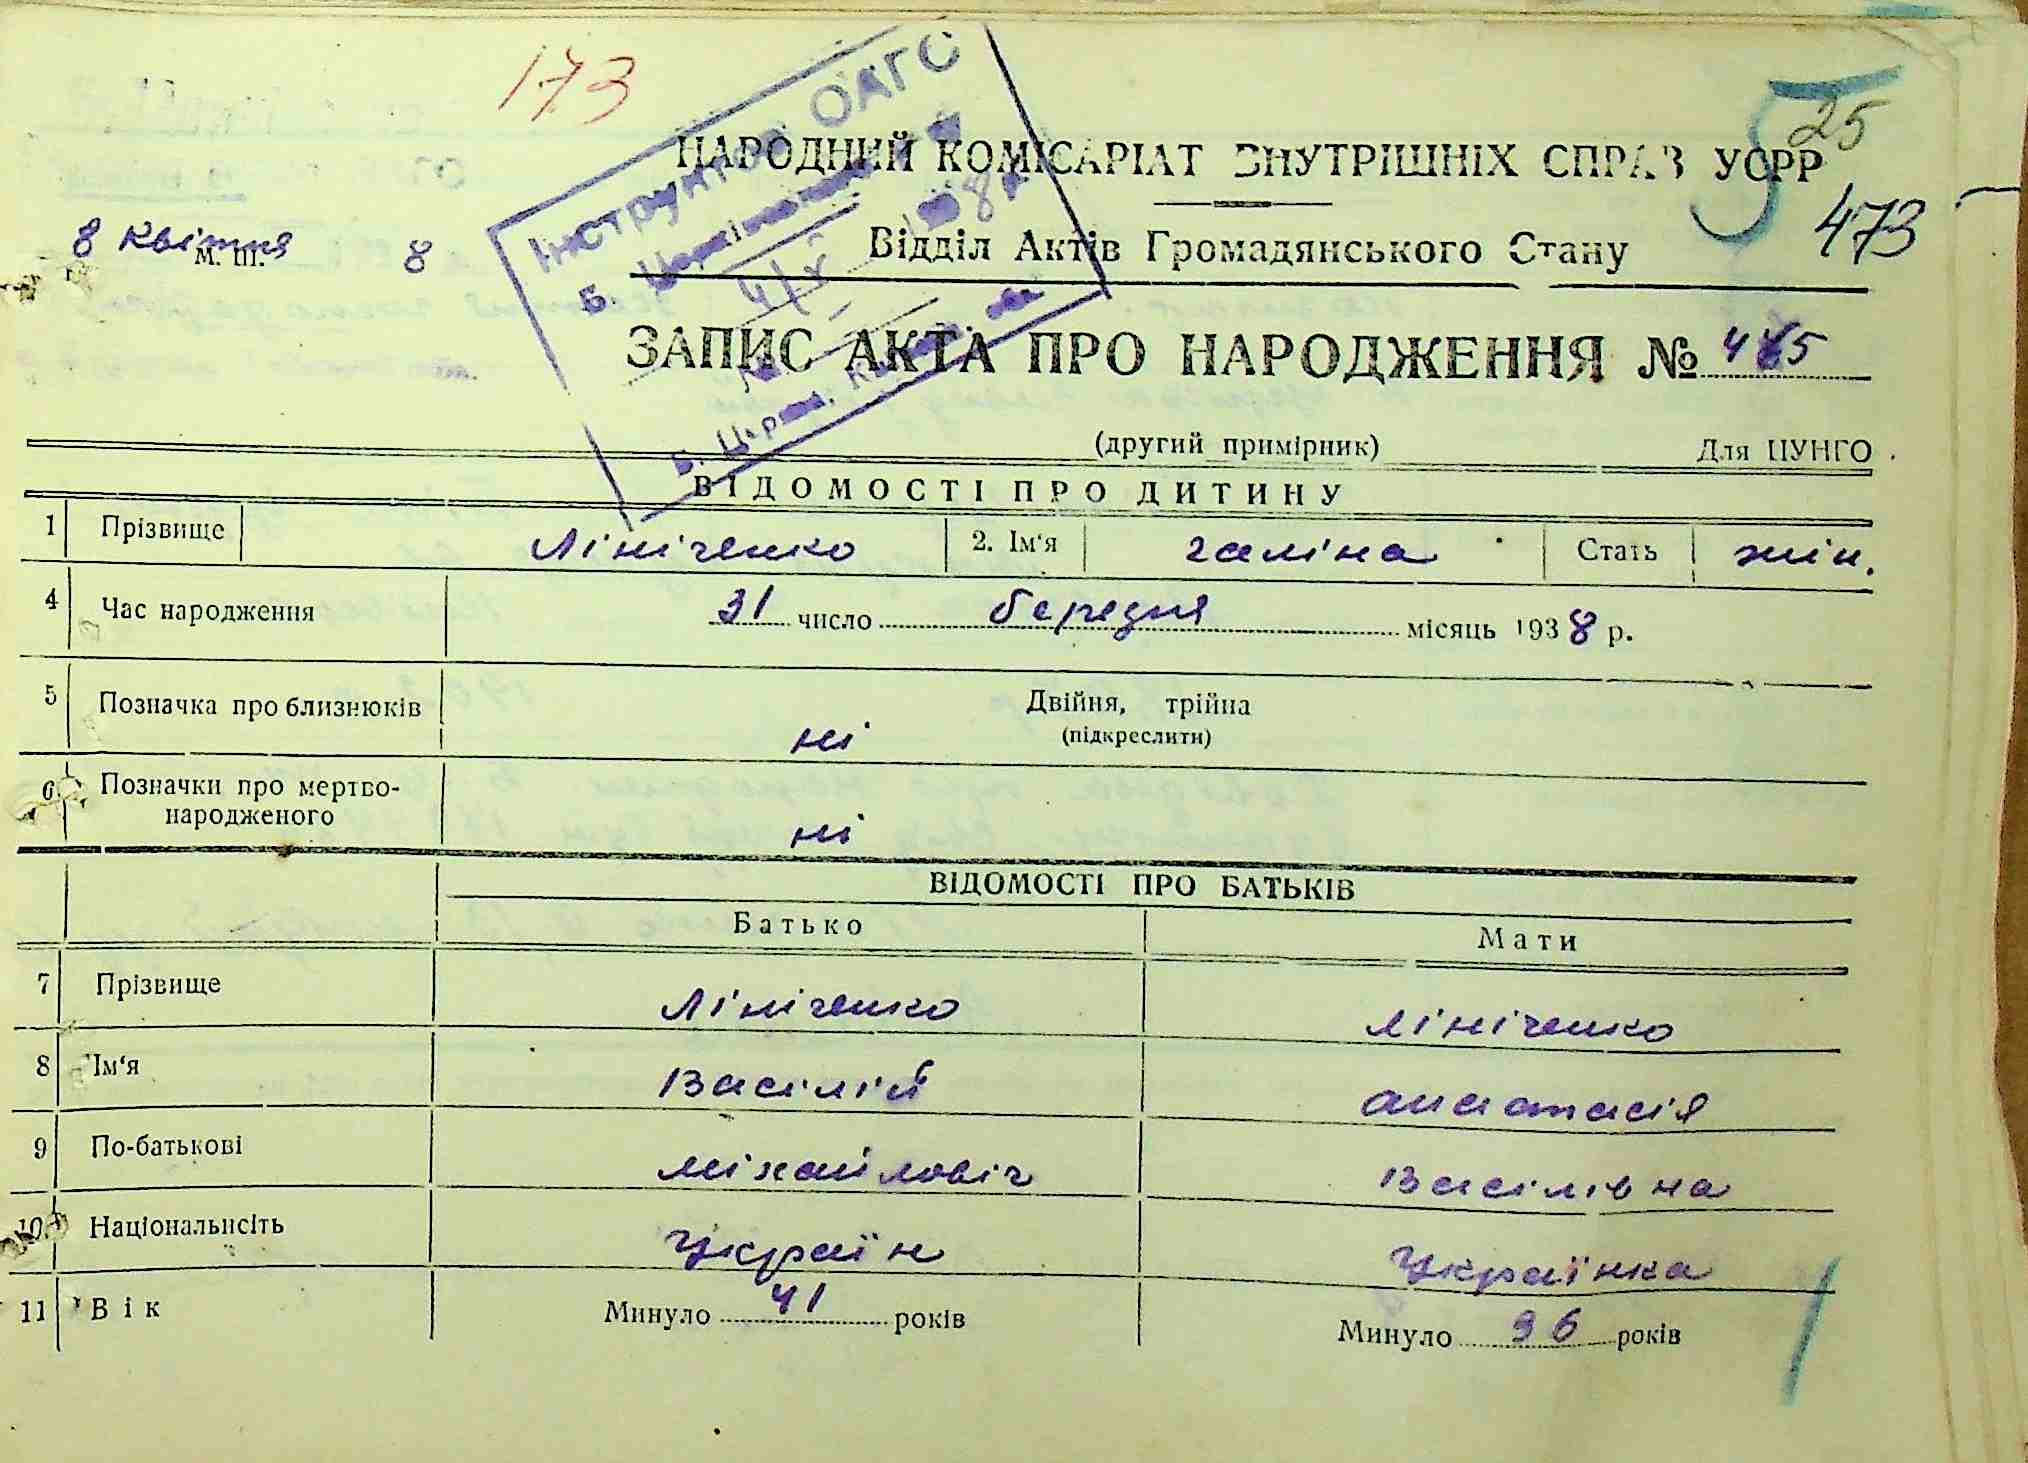 173
25
НАРОДНИЙ КОМІСАРІАТ ВНУТРІШНІХ СПРАВ УСРР
5
473
8 квітня 8
м. ш.
Відділ Актів Громадянського Стану
Інструктор ОАГС
Б. Церківського
ЗАПИС АКТА ПРО НАРОДЖЕННЯ №
Б. Церква, обл
(другий примірник) Для ЦУНГО
ВІДОМОСТІ ПРО ДИТИНУ
1 Прізвище Лініченко 2. Ім'я галіна Стать жін.
4 Час народження 31 число березня місяць 1938 р.
5 Позначка про близнюків ні Двійня, трійна
(підкреслити)
6 Позначки про мертво-
народженого ні
ВІДОМОСТІ ПРО БАТЬКІВ
Батько Мати
7 Прізвище Лініченко Лініченко
8 Ім'я Васілій анатасія
9 По-батькові міхайловіч Васілівна
10 Національність Українн Українка
11 Вік Минуло 41 років Минуло 36 років